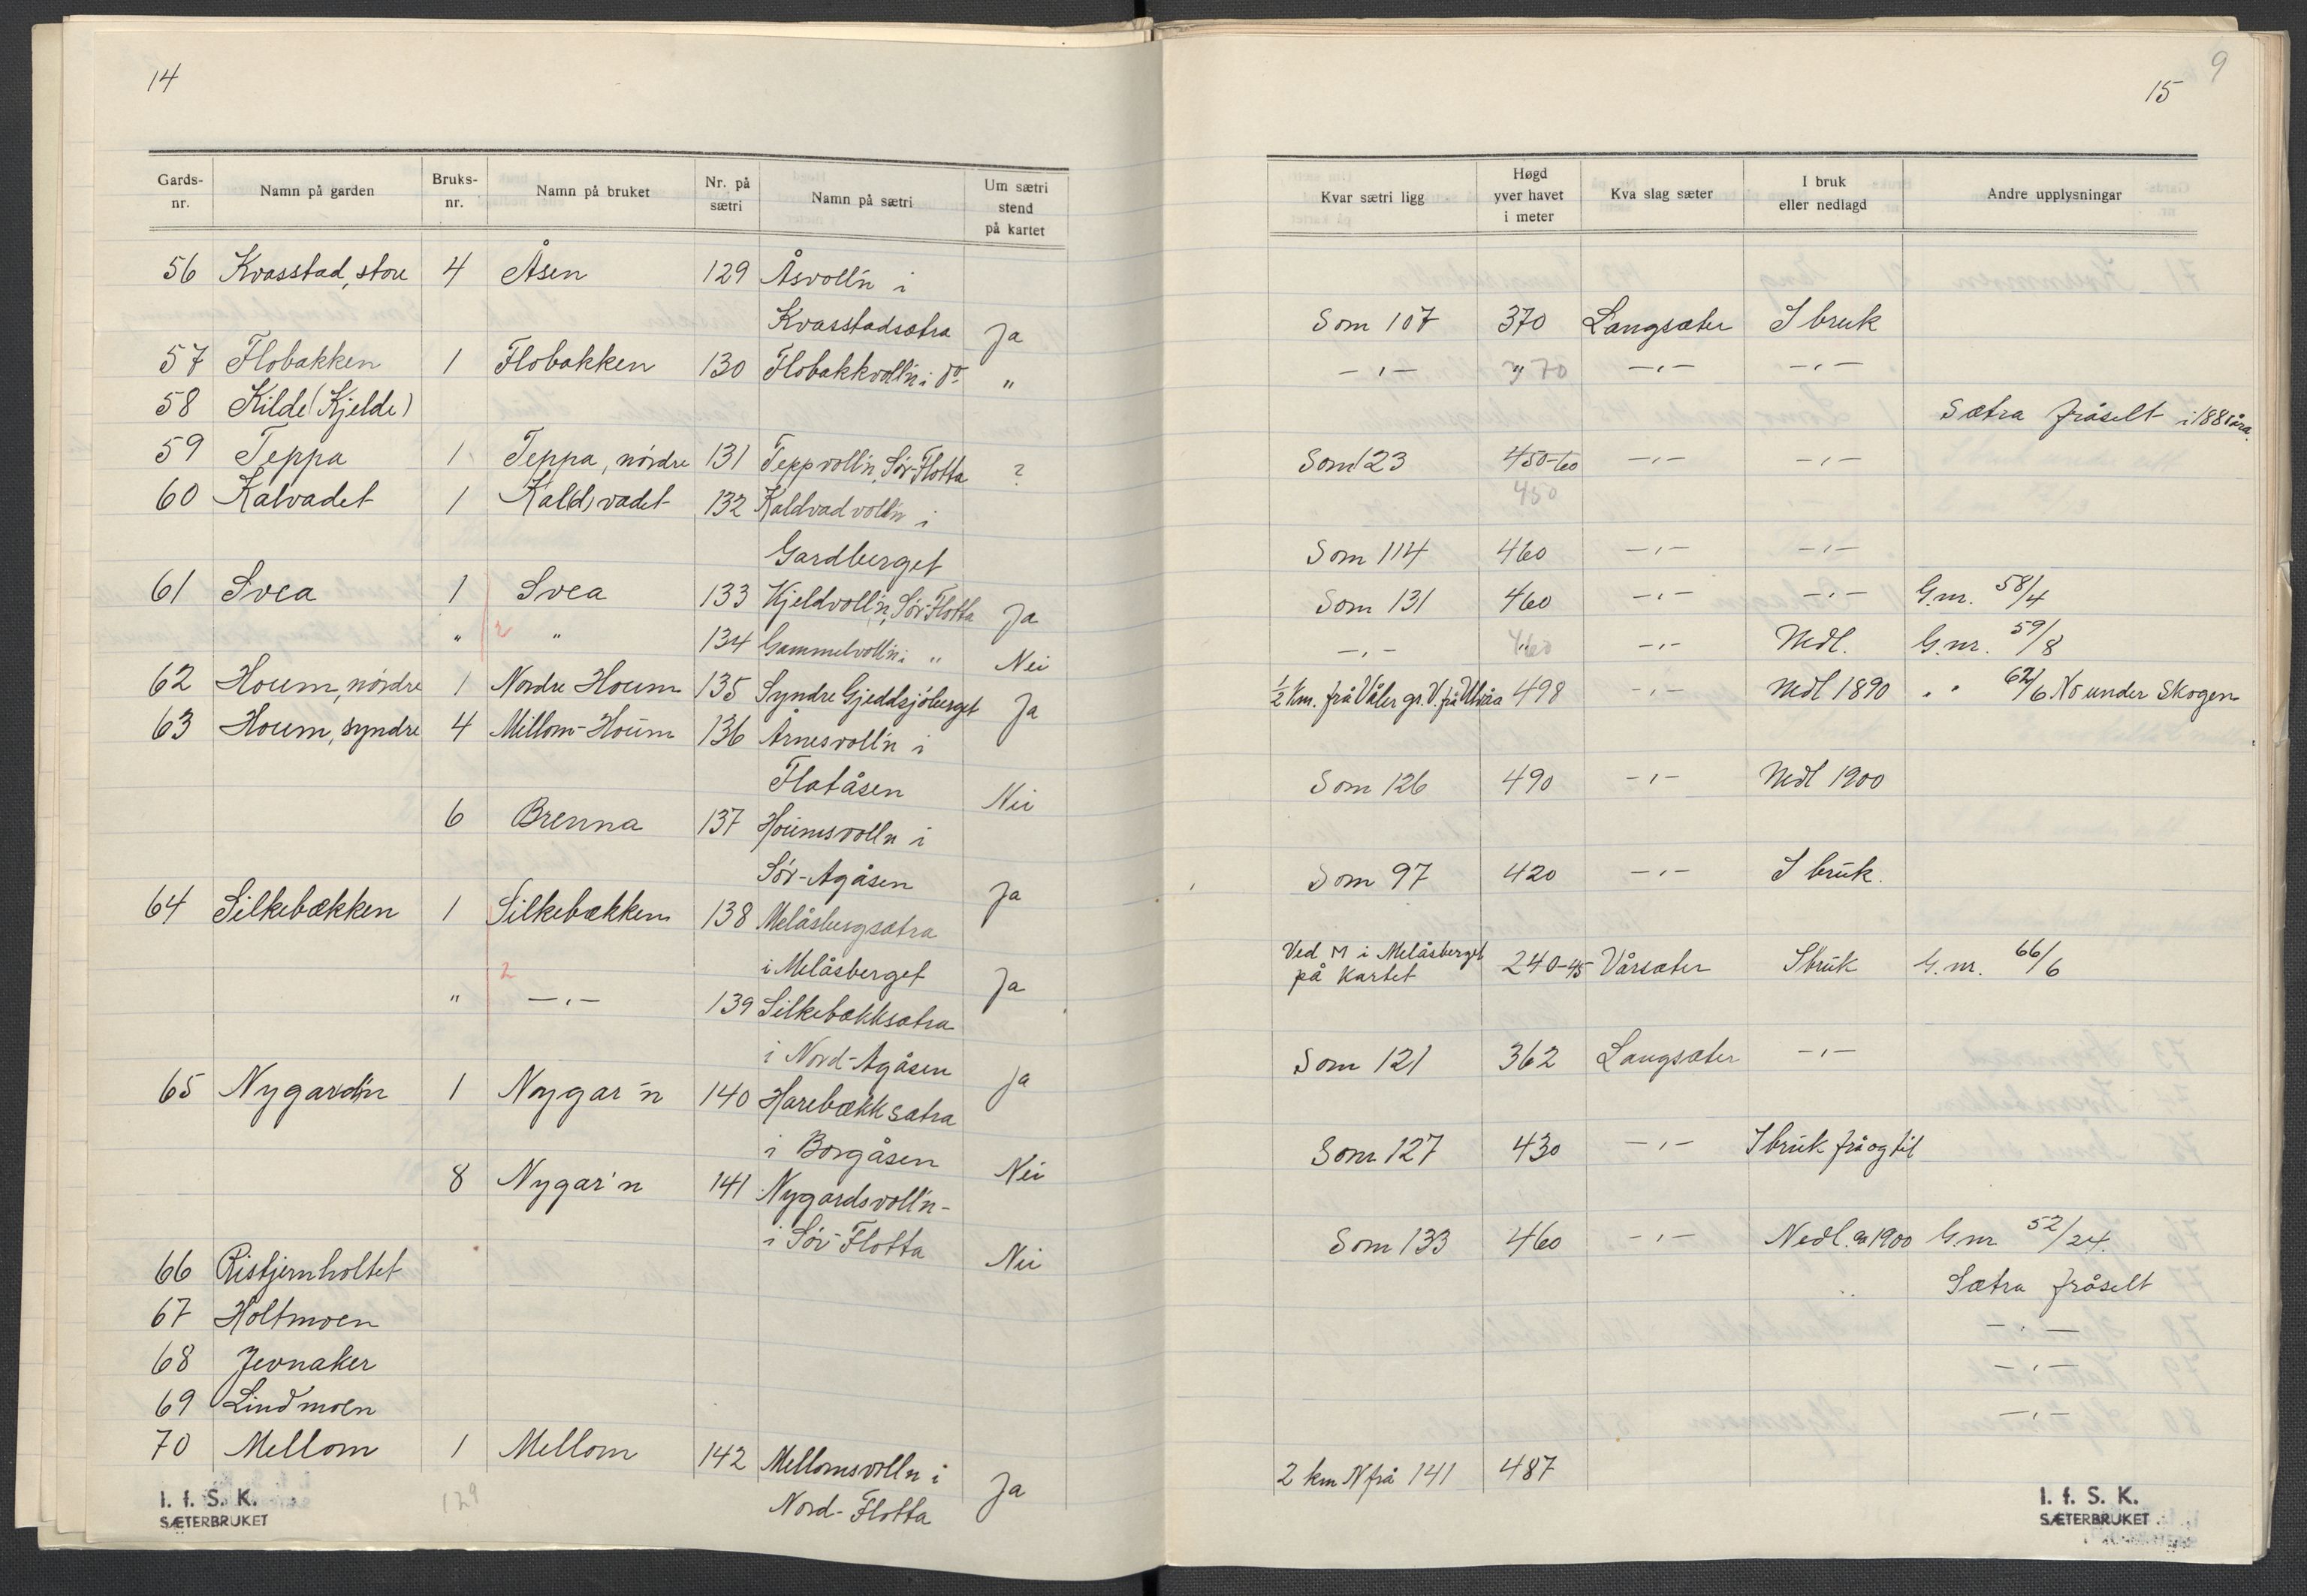 14
Gards-nr. Namn på garden Bruks-nr. Namn på bruket Nr. på sætri Namn på sætri Um sætri stend på kartet
56 Kvasstad, store 4 Åsen 129 Åsvoll'n i
Kvasstadsætra Ja
57 Flobakken 1 Flobakken 130 Flobakkvoll'n i do "
58 Kilde (Kjelde)
59 Teppa 1 Teppa, nørdre 131 Teppvoll'n, Sør-Flotta ?
60 Kalvadet 1 Kald)vadet 132 Kaldvadvoll'n i
Gardberget
61 Svea 1 Svea 133 Kjeldvoll'n, Sør-Flotta Ja
" 2 " 134 Gammelvoll'n i " Nei
62 Houm, nørdre 1 Nordre Houm 135 Syndre Gjeddsjøberget Ja
63 Houm, syndre 4 Millom-Houm 136 Årnesvoll'n i
Flatåsen Nei
6 Brenna 137 Houmsvoll'n i
Sør-Agåsen Ja
64 Silkebækken 1 Silkebækken 138 Melåsbergsætra
2 i Melåsberget Ja
" —"— 139 Silkebækksætra
i Nord-Agåsen Ja
65 Nygard'n 1 Nygar'n 140 Harebækksætra
i Borgåsen Nei
8 Nygar'n 141 Nygardsvoll'n-
i Sør-Flotta Nei
66 Ristjernholtet
67 Holtmoen
68 Jevnaker
69 Lindmoen
70 Mellom 1 Mellom 142 Mellomsvolln i
Nord-Flotta Ja
129
I. f. S. K.
SÆTERBRUKET
9
15
Kvar sætri ligg Høgd yver havet i meter Kva slag sæter I bruk eller nedlagd Andre upplysningar
Som 107 370 Langsæter I bruk
—"— " 370 —"— —"—
Sætra fråselt i 188
Som 123 450-60 —"— —"—
450
Som 114 460 —"— —"—
Som 131 460 —"— —"— G.nr. 58/4
—"— " 460 —"— Nedl. G.nr. 59/8
½ km. frå Våler gr. V. frå 498 —"— Nedl 1890 " " 62/6 No under Skogen
Som 126 490 —"— Nedl 1900
Som 97 420 —"— I bruk.
Ved M i Melåsberget
på kartet 240-45 Vårsæter I bruk G.nr. 66/6
Som 121 362 Langsæter —"—
Som 127 430 —"— I bruk frå og til
Som 133 460 —"— Nedl. ca 1900 G.nr 52/24.
Sætra fråselt
—"—
—"—
—"—
2 km N frå 141 487
I. f. S. K.
SÆTERBRUKET